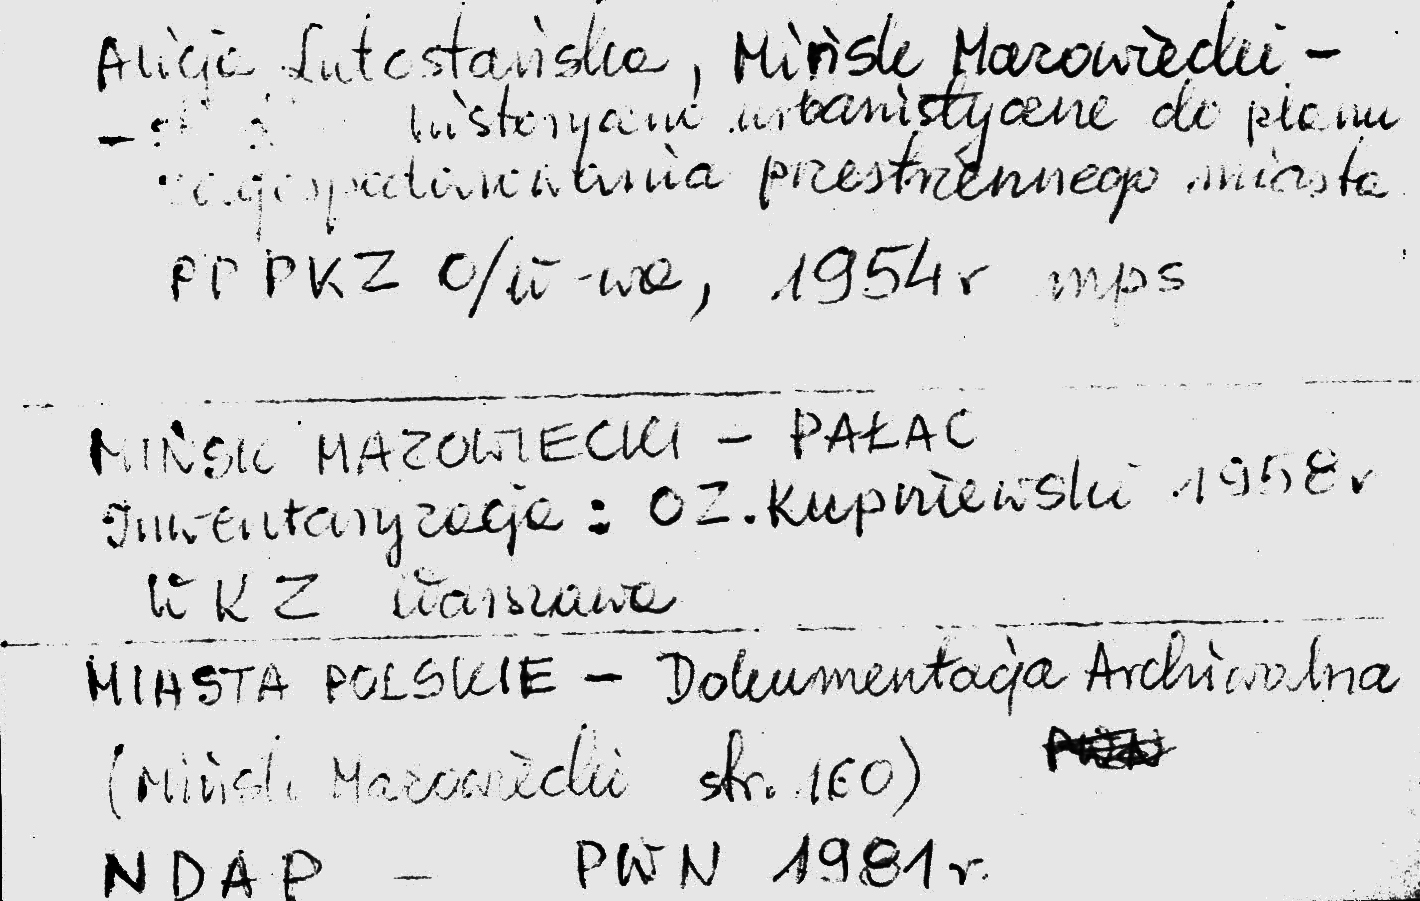 Alicja Lutostańska, Mińsk Mazowiecki –
– historyczno urbanistyczne do planu
zagospodarowania przestrzennego miasta
PP PKZ O/W-wa, 1954r mps
MIŃSK MAZOWIECKI – PAŁAC
Inwentaryzacja: OZ. Kupniewski 1958r
WKZ Warszawa
MIASTA POLSKIE – Dokumentacja Archiwalna
(Mińsk Mazowiecki str. 160)
NDAP – PWN 1981r.